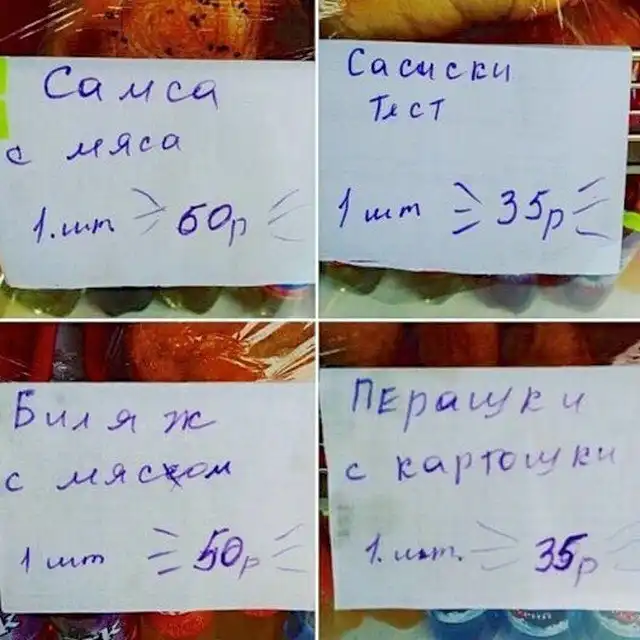 Самса
с мяса
1.шт 60р
Сасиски
Тест
1 шт 35р
Биляж
с мясом
1 шт 50р
ПЕрашуки
с картошки
1.шт. 35р